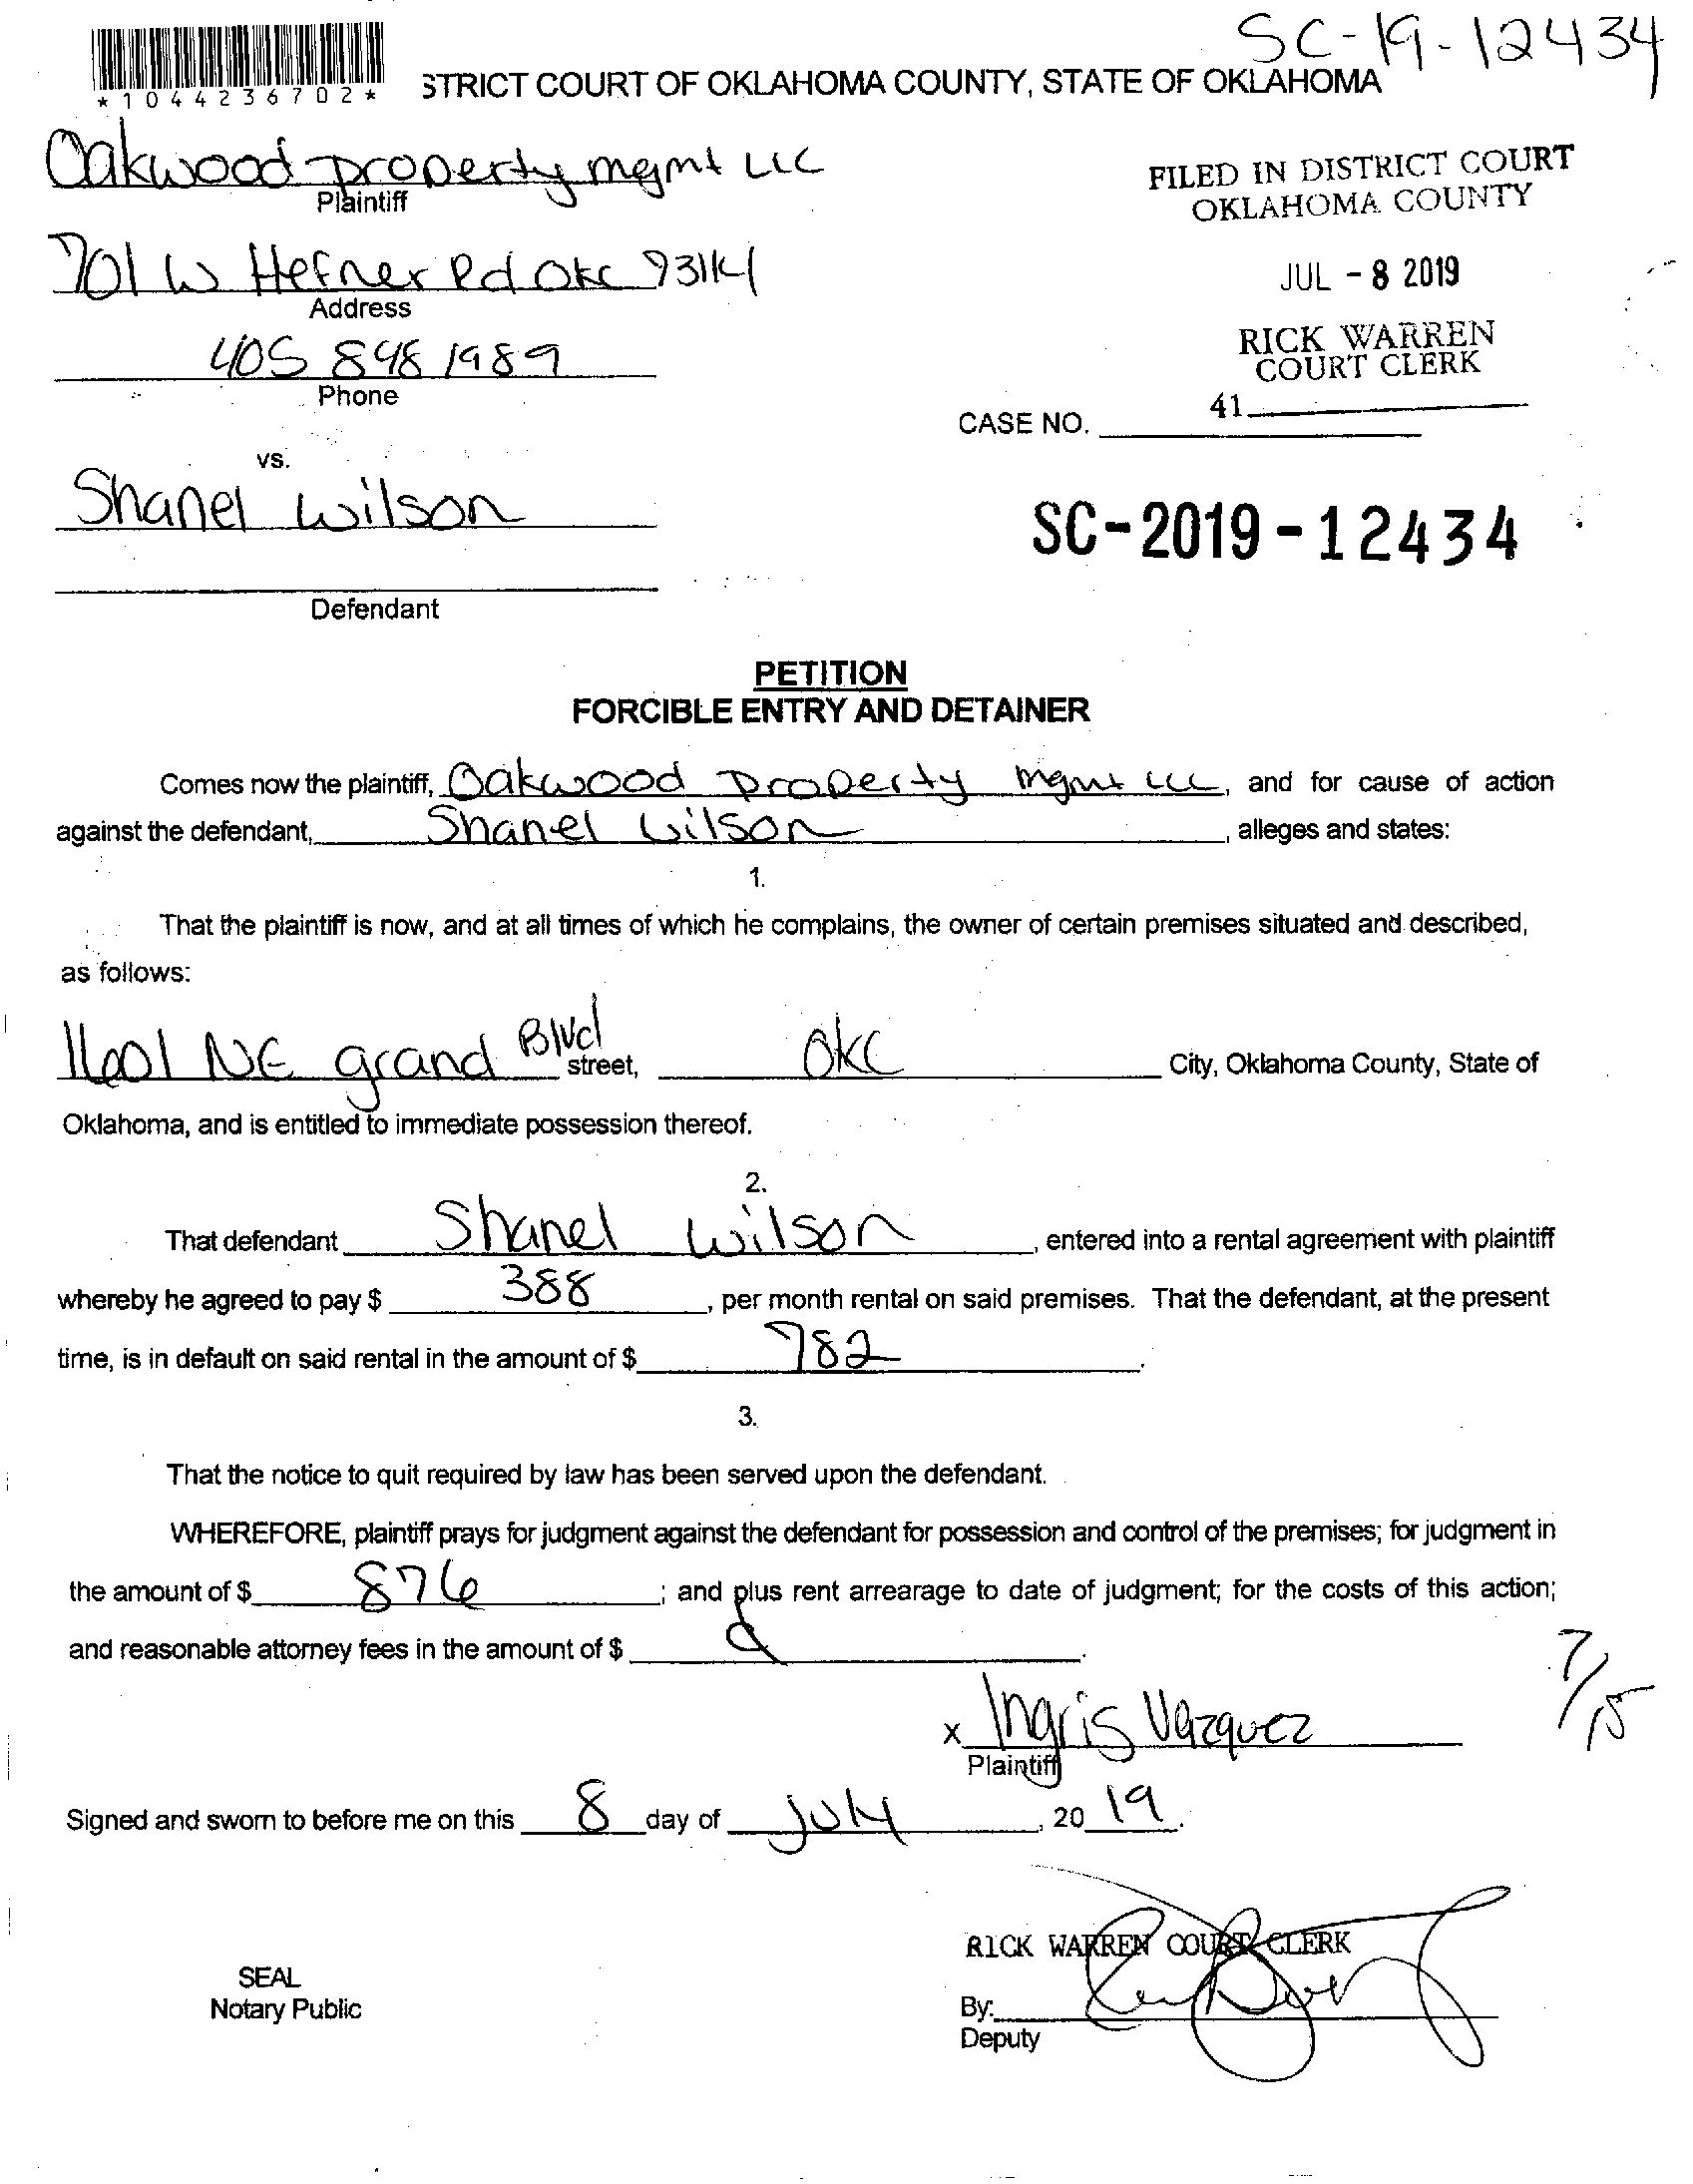 SC-19-12434
*1044236702*
STRICT COURT OF OKLAHOMA COUNTY, STATE OF OKLAHOMA
Oakwood property mgmt LLC
Plaintiff
FILED IN DISTRICT COURT
OKLAHOMA COUNTY
701 W Hefner Rd OKC 73114
Address
JUL - 8 2019
405 848 1989
Phone
RICK WARREN
COURT CLERK
41
CASE NO.
vs.
Shanel Wilson
SC-2019-12434
Defendant
PETITION
FORCIBLE ENTRY AND DETAINER
Comes now the plaintiff, Oakwood Property Mgmt LLC, and for cause of action
against the defendant, Shanel Wilson, alleges and states:
1.
That the plaintiff is now, and at all times of which he complains, the owner of certain premises situated and described,
as follows:
1601 NE grand Blvd street, OKC City, Oklahoma County, State of
Oklahoma, and is entitled to immediate possession thereof.
2.
That defendant Shanel Wilson, entered into a rental agreement with plaintiff
whereby he agreed to pay $ 388, per month rental on said premises. That the defendant, at the present
time, is in default on said rental in the amount of $ 782.
3.
That the notice to quit required by law has been served upon the defendant.
WHEREFORE, plaintiff prays for judgment against the defendant for possession and control of the premises; for judgment in
the amount of $ 876; and plus rent arrearage to date of judgment; for the costs of this action;
and reasonable attorney fees in the amount of $ .
7/15
x Ingris Vazquez
Plaintiff
Signed and sworn to before me on this 8 day of July, 20 19.
RICK WARREN COURT CLERK
SEAL
Notary Public
By:
Deputy